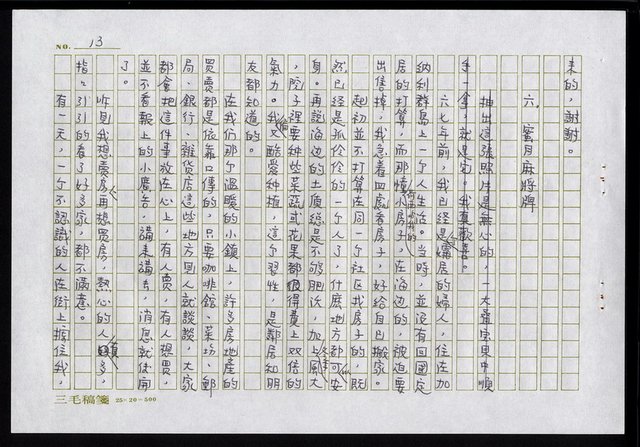 NO. 13
來的,謝謝。
六、蜜月麻將牌
抽出這張照片是無心的,一大疊寶貝中順
手一拿,就是它。我真歡喜。
六七年前,我已經是孀居的婦人,住在加
納利群島上一個人生活。當時,並沒有回國定
居的打算,而那幢小房子,在海邊的,被迫要
出售掉,我急着四處看房子,好給自己搬家。
起初並不打算在同一個社區找房子的,既
然已經是孤伶伶的一個人了,什麼地方都可安
身。再說海邊的土質總是不夠肥沃,加上風大
,院子裡要種些菜蔬或花果都得費上双倍的
氣力。我又偏酷愛種植,這個習性,是鄰居和朋
友都知道的。
在我们那個溫暖的小鎮上,許多房地產的
買賣都是依靠口傳的,只要咖啡館、菜坊、郵
局、銀行、雜貨店這些地方隨人就談談,大家
都會把這件事放在心上,有人賣,有人想買,
並不看報上的小廣告,講來講去,消息就傳開
了。
听見我想賣房再想買房,熱心的人真多,
指指引引的看了好多家,都不滿意。
有一天,一個不認識的人在街上擋住我,
三毛稿箋 25×20=500